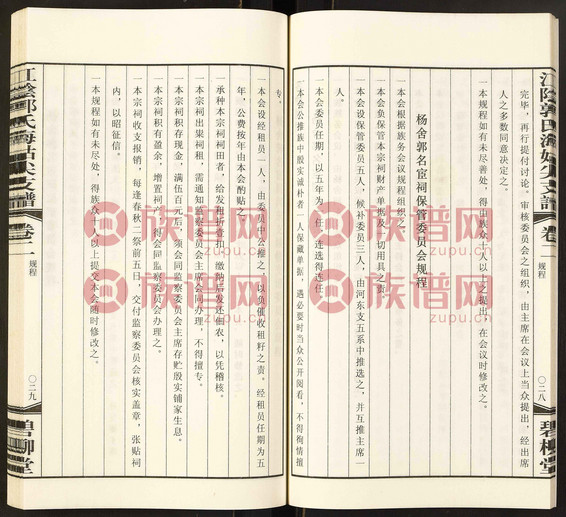 完毕，再行提付讨论。审核委员会之组织，由主席在会议上当众提出，经出席
人之多数同意决定之。
一本规程如有未尽善处，得由族众十人以上之提出，在会议时修改之。
杨舍郭名宦祠保管委员会规程
一本会根据族务会议规程组织之。
一本会负保管本宗祠财产单据及一切用具之责。
一本会设保管委员五人，候补委员三人，由河东支五系中推选之，并互推主席一
人。
一本会委员任期，以五年为一任，连选得连任。
一本会公推族中股实诚朴者一人保藏单据，遇必要时当众公开阅看，不得徇情擅
专。
一本会设经租员一人，由委员中公推之，以负催收租籽之责。经租员任期为五
年，公费按年由本会酌贴之。
一承种本宗祠祠田者，给发租折查扣，缴纳后发还佃农，以凭稽核。
一本宗祠出粜祠租，需通知监察委员会主席会同办理，不得擅专。
一本宗祠积存现金，满伍百元后，须会同监察委员会主席存贮殷实铺家生息。
一本宗祠积有盈余，增置祠产，得会同监察委员会办理之。
一本宗祠收支报销，每逢春秋二祭前五日，交付监察委员会核实盖章，张贴祠
内，以昭征信。
一本规程如有未尽处，得族众十人以上提交本会随时修改之。
江阴郭氏海姑尖支谱
卷二
规程
〇二八
碧柳堂
江阴郭氏海姑尖支谱
卷二
规程
〇二九
碧柳堂
族谱网
zupu.cn
族谱网
zupu.cn
族谱网
zupu.cn
族谱网
zupu.cn